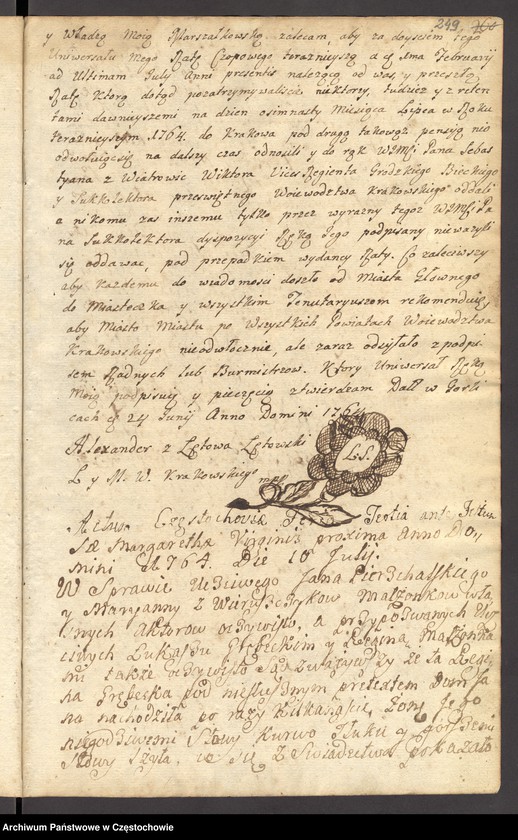 249. 260
y Władzą Moią Marszałkowską zalecam, aby za doyściem tego
Uniwersału mego Ratę Czopowego teraznieyszą a die 1ma Februarij
ad Ultimam July Anni presentis należącą od was y przeszłą
Ratę ktorą dotąd pozatrzymywaliście niektorzy, tudziez y z reten
tami dawnieyszemi na dzien osimnasty Miesiąca Lipca w Roku
teraznieyszym 1764. do Krakowa pod drogą takowąż pensyą nie
odwołuiącsię na dalszy czas odnosili y do rąk WJMSci Pana Sebas
tyana z Wiatrowic Wiktora ViceRegenta Grodzkiego Bieckiego
y Sukkolektora przeswiętnego Woiewodztwa Krakowskiego oddali
a nikomu zas inszemu tylko przez wyrazny tegoz WJMSci Pa
na Sukkolektora dyspozycyi Ręką Jego podpisany niewazyli
się oddawac, pod przepadkiem wydaney Raty. Co zaleciwszy
aby kazdemu do wiadomosci doszło od Miasta Głownego
do Miasteczka y wszystkim Tenutaryuszom rekomenduię
aby Miasto Miastu po Wszystkich Powiatach Woiewodztwa
Krakowskiego nieodwłocznie, ale zaraz odsyłało z podpi
sem Radnych lub Burmistrzow. Ktory Uniwersał Ręką
Moią podpisuię y pieczęcią ztwierdzam Datt w Gorli
cach d 24 Junij Anno Domini 1764
Alexander z Lętowa Lętowski
L. S.
L y M. W. Krakowskiego mpp
Actum Częstochoviæ Feria Tertia ante Festum
Sæ Margarethæ Virginis proxima Anno Do,,
mini 1764. Die 10 July.
W Sprawie Uczciwego Jana Pierschalskiego
y Maryanny z Małzonkow wła
snych Aktorow oczywisto, a przypozwanych Ucz
ciwych Łukaszu Grębeckim y Reginą Małzonka
mi także oczywisto Sąd zwazywszy że ta Regi
na Grębecka pod niesłusznym pretextem Dom Ja
na nachodziła po razy kilkanaście, zonę Jego
niegodziwemi Słowy Kurwo Tłuku y gorszemi
Słowy Szyła, co się z Swiadectwa pokazało
Archiwum Państwowe w Częstochowie